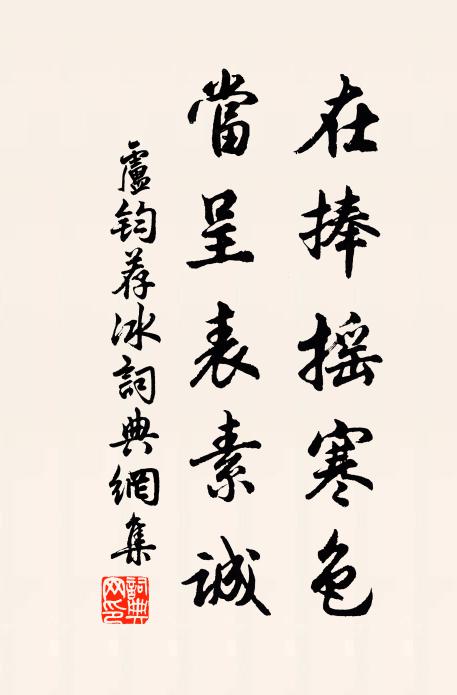 在捧摇寒色
當呈表素誠
盧钧荐冰詞典網集
詞典網印